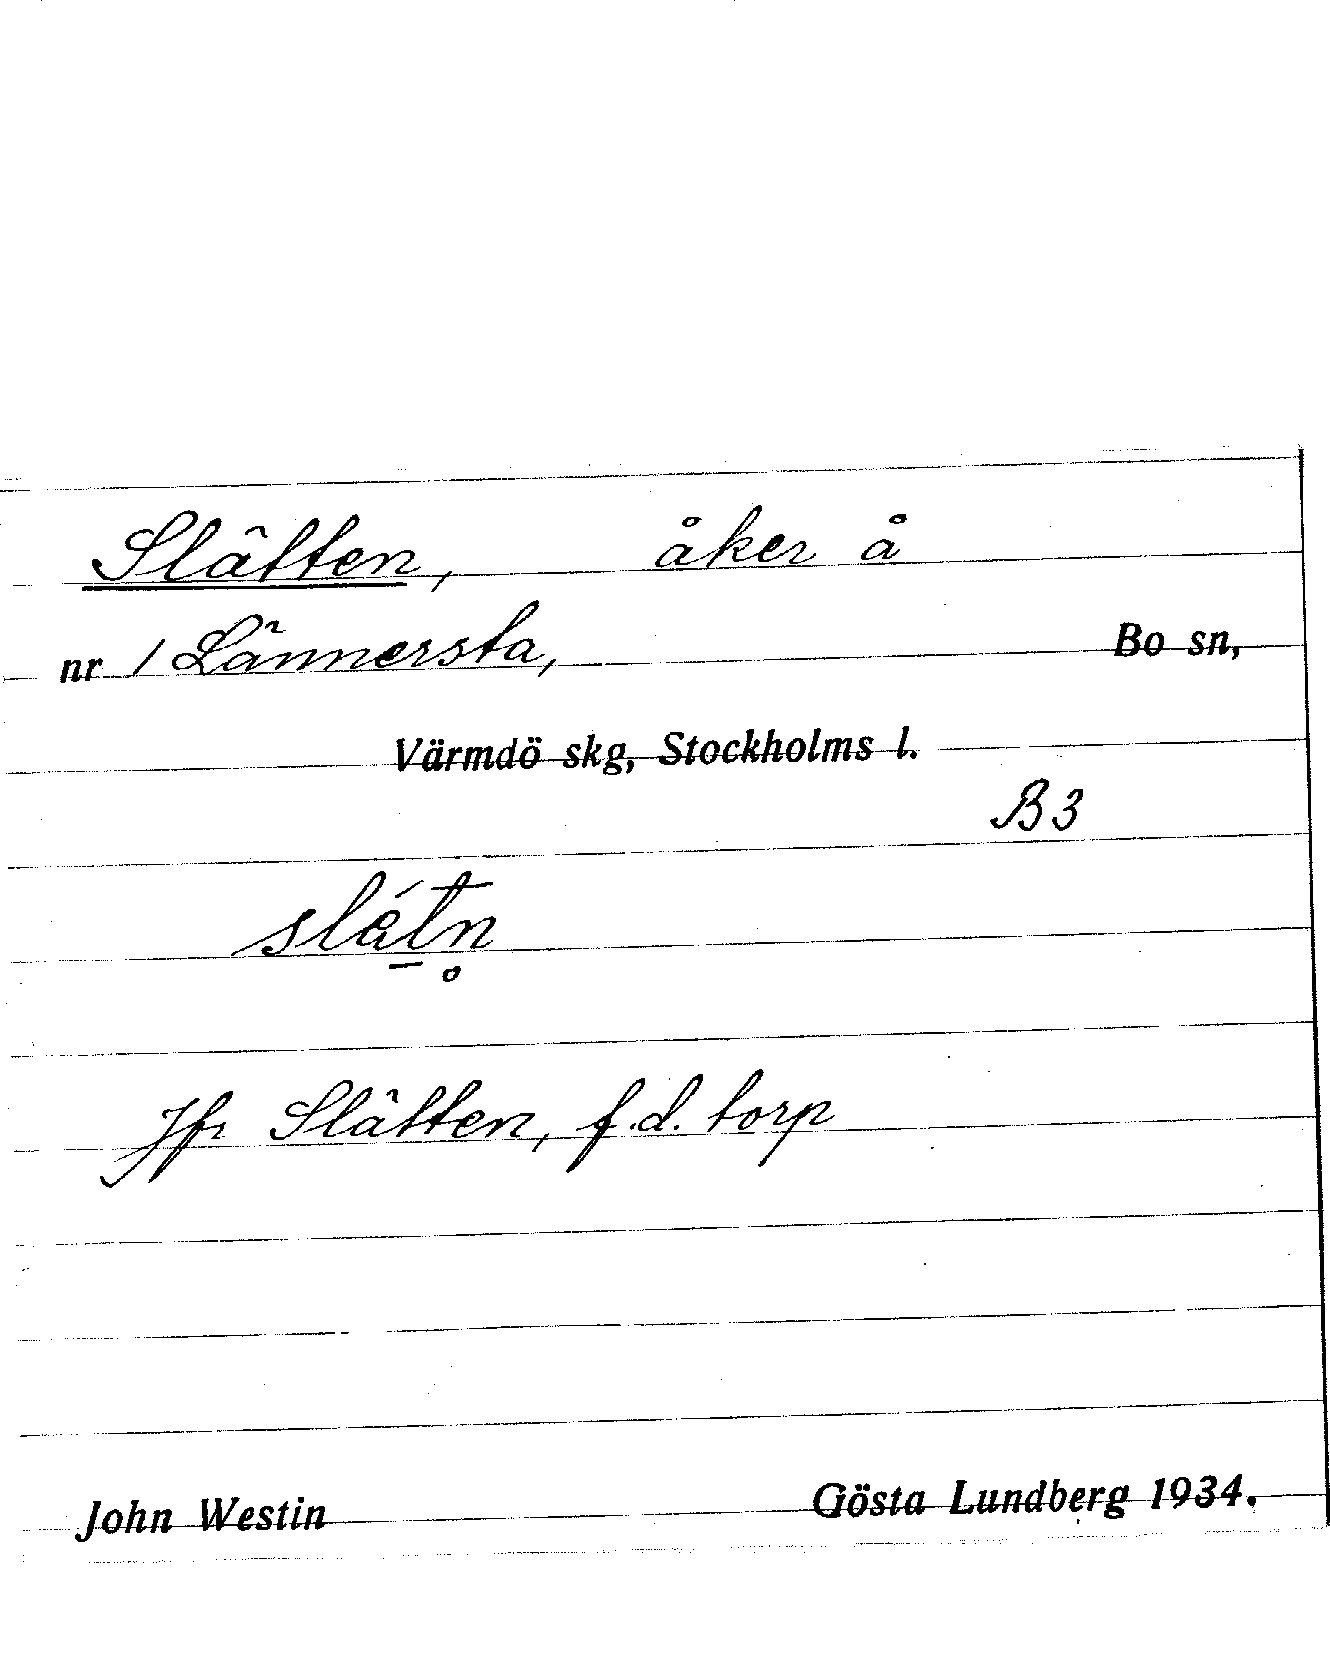 Slätten, åker å
nr 1 Lännersta, Bo sn,
Värmdö skg, Stockholms l.
B3
Jfr Slätten, f.d. torp
John Westin Gösta Lundberg 1934.